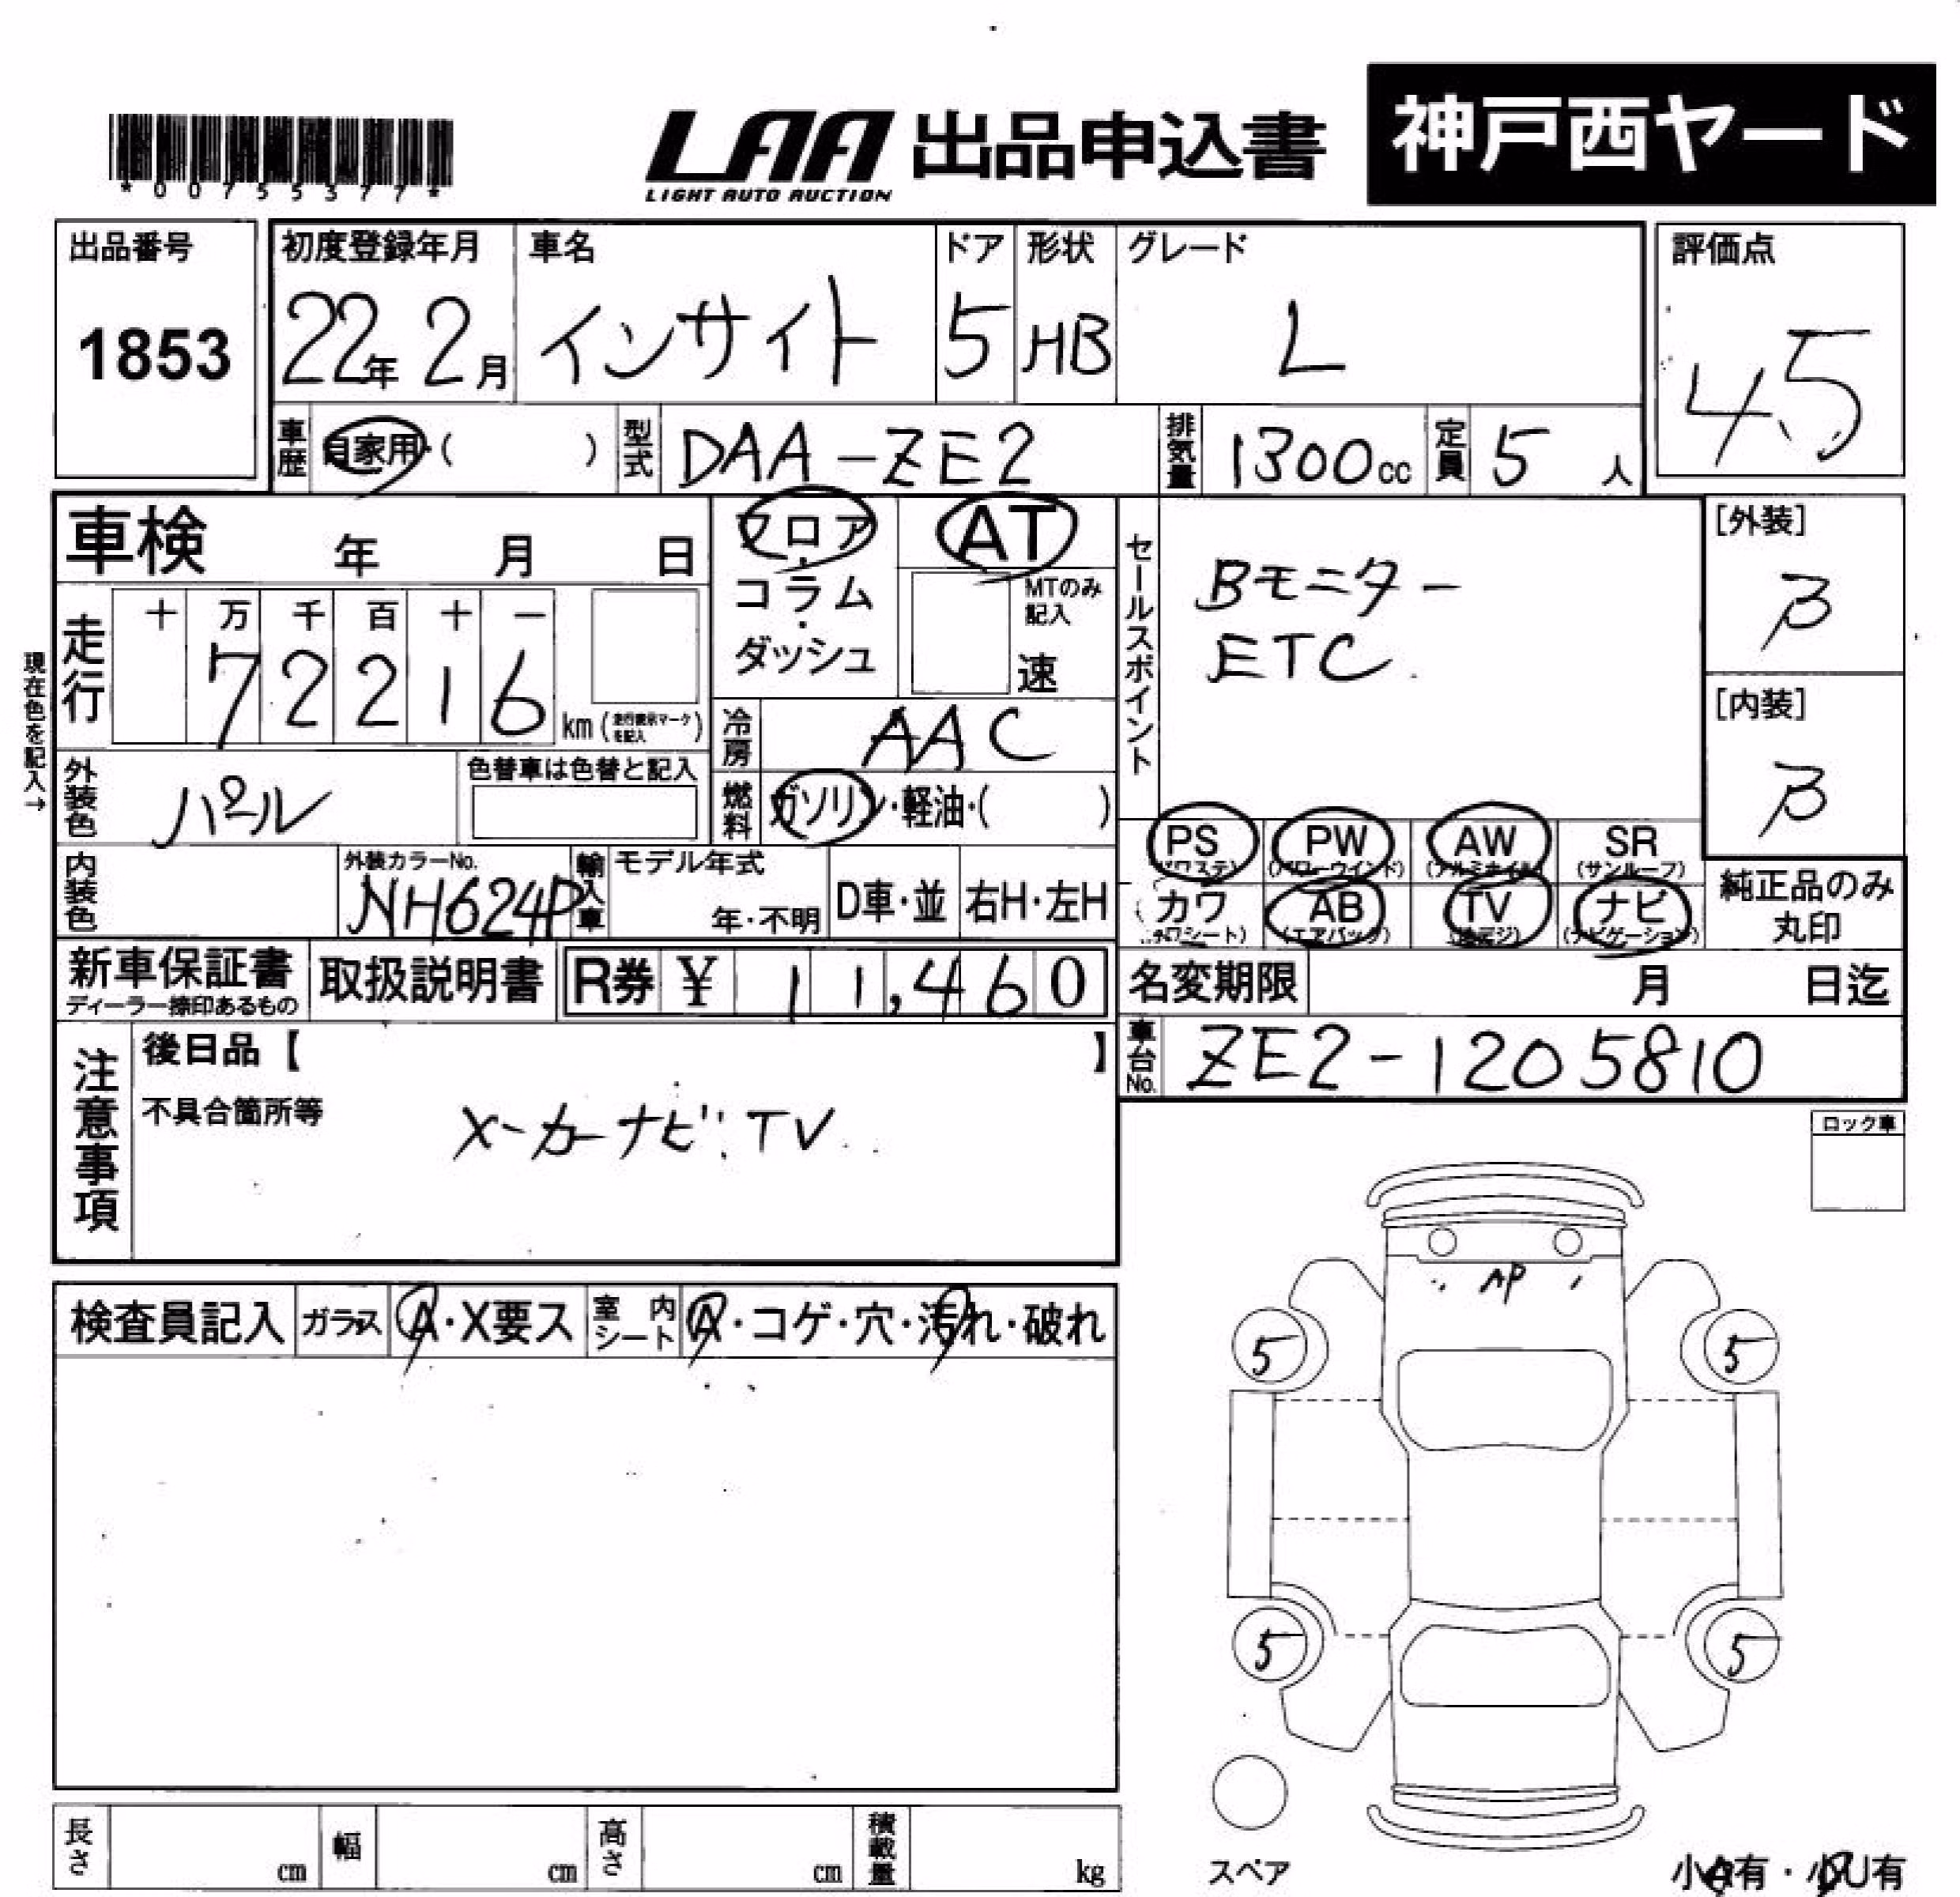 *00755377*
LAA 出品申込書
LIGHT AUTO AUCTION
神戸西ヤード
出品番号
1853
初度登録年月
22年 2月
車名
インサイト
ドア
5
形状
HB
グレード
L
評価点
4.5
車歴
自家用・( )
型式
DAA-ZE2
排気量
1300cc
定員
5人
車検 年 月 日
フロア・コラム・ダッシュ
AT
MTのみ記入
速
セールスポイント
Bモニター
ETC
[外装]
B
[内装]
B
現在色を記入→
走行
十 万 千 百 十 一
7 2 2 1 6 km (走行表示マークを記入)
冷房
AAC
外装色
パール
色替車は色替と記入
燃料
ガソリン・軽油・( )
内装色
外装カラーNo.
NH624P
輸入車
モデル年式
年・不明
D車・並
右H・左H
PS
(パワステ)
PW
(パワーウインド)
AW
(アルミホイル)
SR
(サンルーフ)
カワ
(カワシート)
AB
(エアバック)
TV
(地デジ)
ナビ
(ナビゲーション)
純正品のみ
丸印
新車保証書
ディーラー捺印あるもの
取扱説明書
R券 ¥ 11,460
名変期限 月 日迄
車台No.
ZE2-1205810
注意事項
後日品【 】
不具合箇所等
メーカーナビ.TV
ロック車
検査員記入
ガラス
A・X要ス
室内シート
A・コゲ・穴・汚れ・破れ
AP
5 5
5 5
スペア
長さ cm
幅 cm
高さ cm
積載量 kg
小A有・小U有